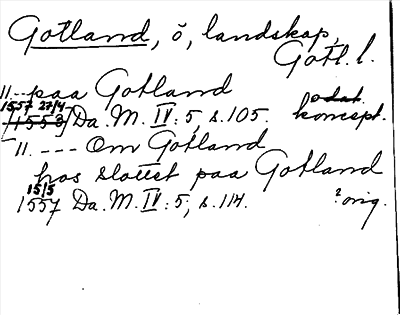 Gotland, ö, landskap,
Gotl. l.
11. -- paa Gotland
1557 27/4 odat.
[1558] Da. M. IV: 5, s. 105. koncept.
11. --- Om Gotland
hos slottet paa Gotland
15/5
1557 Da. M. IV: 5, s. 114. ? orig.